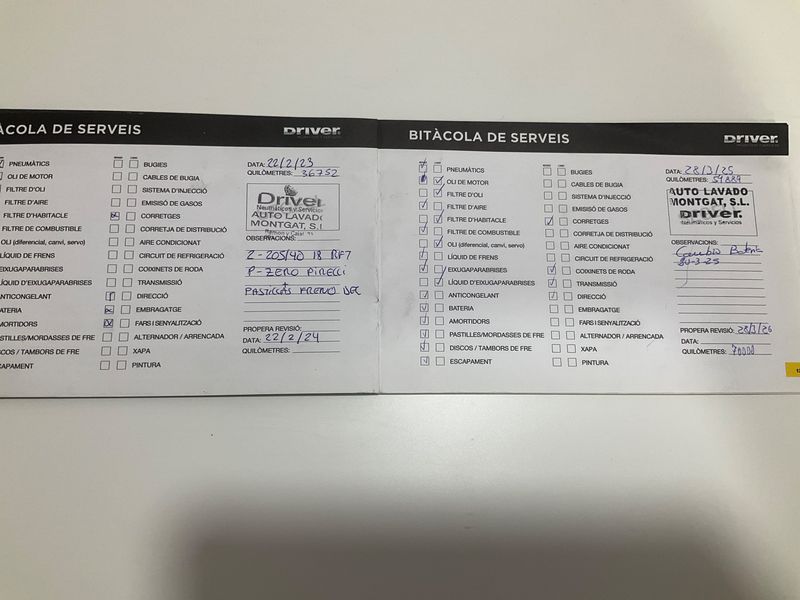 ÀCOLA DE SERVEIS
Driver
PNEUMÀTICS
OLI DE MOTOR
FILTRE D'OLI
FILTRE D'AIRE
FILTRE D'HABITACLE
FILTRE DE COMBUSTIBLE
OLI (diferencial, canvi, servo)
LÍQUID DE FRENS
EIXUGAPARABRISES
LÍQUID D'EIXUGAPARABRISES
ANTICONGELANT
BATERIA
AMORTIDORS
PASTILLES/MORDASSES DE FRE
DISCOS / TAMBORS DE FRE
SCAPAMENT
BUGIES
CABLES DE BUGIA
SISTEMA D'INJECCIÓ
EMISIÓ DE GASOS
CORRETGES
CORRETJA DE DISTRIBUCIÓ
AIRE CONDICIONAT
CIRCUIT DE REFRIGERACIÓ
COIXINETS DE RODA
TRANSMISSIÓ
DIRECCIÓ
EMBRAGATGE
FARS I SENYALITZACIÓ
ALTERNADOR / ARRENCADA
XAPA
PINTURA
DATA: 22/2/23
QUILÒMETRES: 36752
Driver
Neumáticos y Servicios
AUTO LAVADO
MONTGAT, S.L
OBSERVACIONS:
2-205/40 18 RFT
P-ZERO PIRELLI
+
PASTILLAS FRENO DEL
PROPERA REVISIÓ:
DATA: 22/2/24
QUILÒMETRES:
BITÀCOLA DE SERVEIS
Driver
PNEUMÀTICS
OLI DE MOTOR
FILTRE D'OLI
FILTRE D'AIRE
FILTRE D'HABITACLE
FILTRE DE COMBUSTIBLE
OLI (diferencial, canvi, servo)
LÍQUID DE FRENS
EIXUGAPARABRISES
LÍQUID D'EIXUGAPARABRISES
ANTICONGELANT
BATERIA
AMORTIDORS
PASTILLES/MORDASSES DE FRE
DISCOS / TAMBORS DE FRE
ESCAPAMENT
BUGIES
CABLES DE BUGIA
SISTEMA D'INJECCIÓ
EMISIÓ DE GASOS
CORRETGES
CORRETJA DE DISTRIBUCIÓ
AIRE CONDICIONAT
CIRCUIT DE REFRIGERACIÓ
COIXINETS DE RODA
TRANSMISSIÓ
DIRECCIÓ
EMBRAGATGE
FARS I SENYALITZACIÓ
ALTERNADOR / ARRENCADA
XAPA
PINTURA
DATA: 28/3/25
QUILÒMETRES: 59889
AUTO LAVADO
MONTGAT, S.L.
Driver
Neumáticos y Servicios
OBSERVACIONS:
Cambio
PROPERA REVISIÓ: 28/3/26
DATA:
QUILÒMETRES: 70000